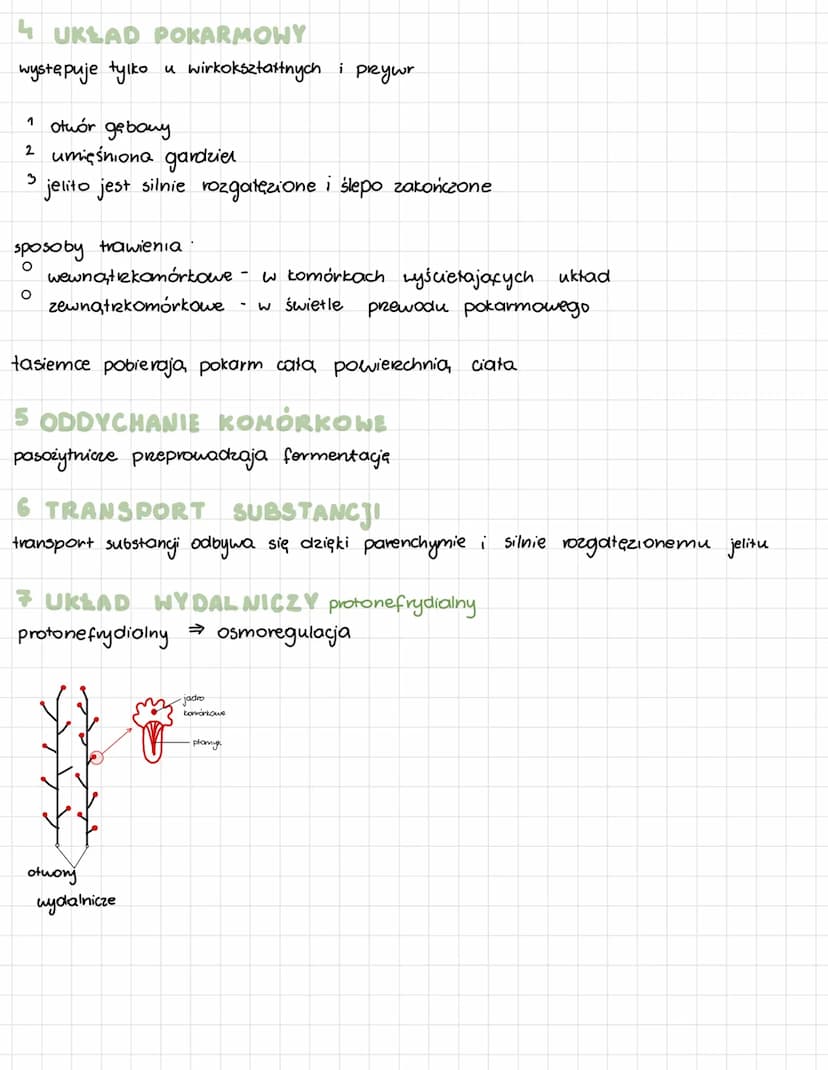 4 UKŁAD POKARMOWY
występuje tylko u wirkokształtnych i przywr
1 otwór gębowy
2 umięśniona gardziel
3 jelito jest silnie rozgałęzione i ślepo zakończone
sposoby trawienia:
wewnątrzkomórkowe - w komórkach wyściełających układ
zewnątrzkomórkowe - w świetle przewodu pokarmowego
tasiemce pobierają pokarm całą powierzchnią ciała
5 ODDYCHANIE KOMÓRKOWE
pasożytnicze przeprowadzają fermentację
6 TRANSPORT SUBSTANCJI
transport substancji odbywa się dzięki parenchymie i silnie rozgałęzionemu jelitu
7 UKŁAD WYDALNICZY protonefrydialny
protonefrydialny ⇒ osmoregulacja
jądro
komórkowe
płomyk
otwory
wydalnicze